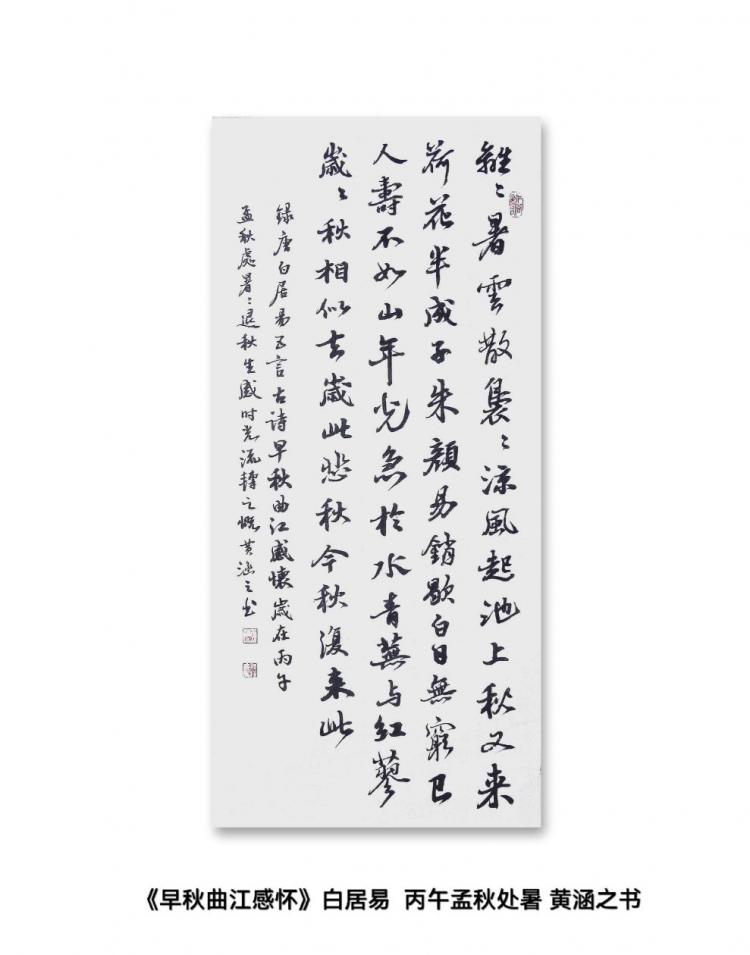 離〻暑雲散褭〻涼風起池上秋又来
荷花半成子朱顔易銷歇白日無窮已
人壽不如山年光急於水青蕪与紅蓼
歲〻秋相似去歲此悲秋今秋復来此
録唐白居易五言古詩早秋曲江感懷歲在丙午
孟秋處暑〻退秋生感时光流轉之慨黄涵之书
《早秋曲江感怀》白居易 丙午孟秋处暑 黄涵之书